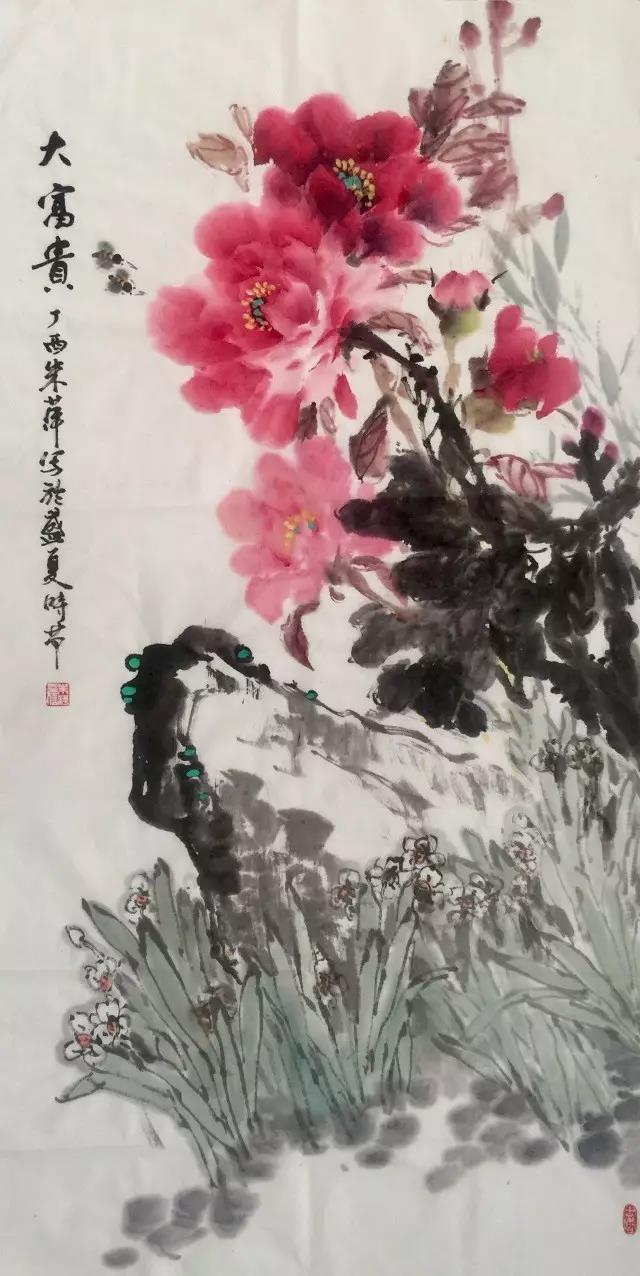 大富貴丁酉朱萍写於盛夏時节